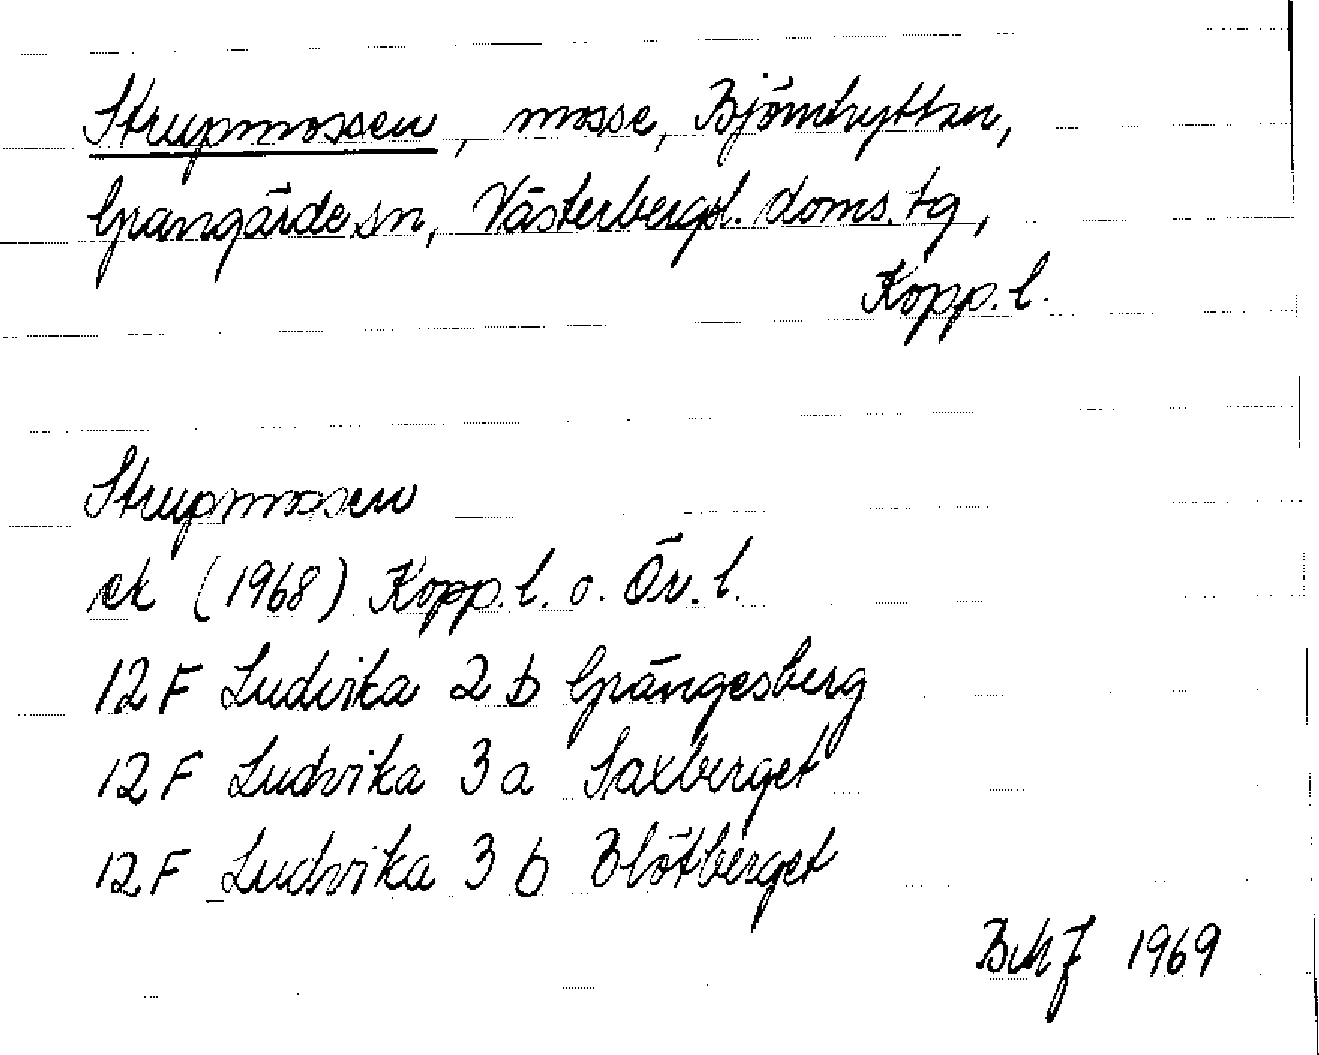 Strupmossen, mosse, Björnhyttan,
Grangärde sn, Västerbergsl. doms. tg,
Kopp. l.
Strupmossen
ek (1968) Kopp. l. o. Ör. l.
12 F Ludvika 2 b Grängesberg
12 F Ludvika 3 a Saxberget
12 F Ludvika 3 b Blötberget
1969